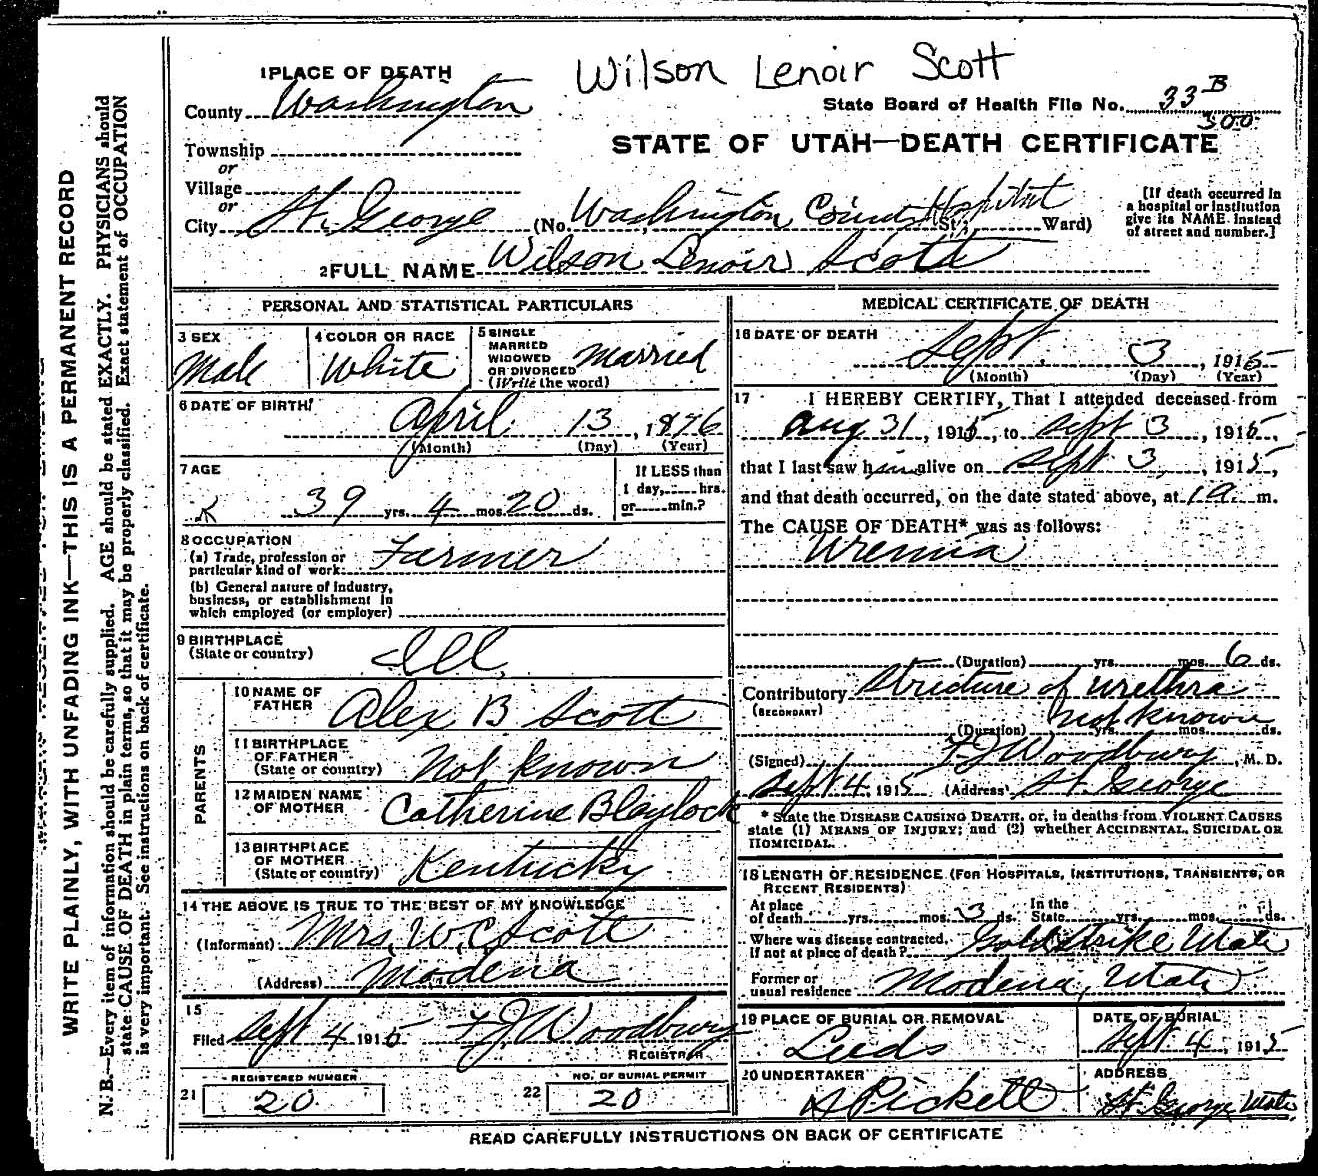 Wilson Lenoir Scott
1 PLACE OF DEATH
County Washington
State Board of Health File No. 33 B
300
STATE OF UTAH—DEATH CERTIFICATE
Township
or
Village
or
City St. George (No. Washington County Hospital St.; Ward)
[If death occurred in
a hospital or institution
give its NAME instead
of street and number.]
2 FULL NAME Wilson Lenoir Scott
PERSONAL AND STATISTICAL PARTICULARS
3 SEX
Male
4 COLOR OR RACE
White
5 SINGLE
MARRIED
WIDOWED
OR DIVORCED
(Write the word)
Married
6 DATE OF BIRTH
April 13, 1876
(Month) (Day) (Year)
7 AGE
39 yrs. 4 mos. 20 ds.
If LESS than
1 day, hrs.
or min.?
8 OCCUPATION
(a) Trade, profession or
particular kind of work Farmer
(b) General nature of Industry,
business, or establishment in
which employed (or employer)
9 BIRTHPLACE
(State or country) Ill.
PARENTS
10 NAME OF
FATHER Alex B Scott
11 BIRTHPLACE
OF FATHER
(State or country) Not known
12 MAIDEN NAME
OF MOTHER Catherine Blaylock
13 BIRTHPLACE
OF MOTHER
(State or country) Kentucky
14 THE ABOVE IS TRUE TO THE BEST OF MY KNOWLEDGE
(Informant) Mrs. W. C Scott
(Address) Modena
15
Filed Sept 4 1915 F J Woodbury
REGISTRAR
21 REGISTERED NUMBER
20
22 NO. OF BURIAL PERMIT
20
MEDICAL CERTIFICATE OF DEATH
16 DATE OF DEATH
Sept. 3, 1915
(Month) (Day) (Year)
17 I HEREBY CERTIFY, That I attended deceased from
Aug 31, 1915, to Sept 3, 1915,
that I last saw him alive on Sept 3, 1915,
and that death occurred, on the date stated above, at 1 a. m.
The CAUSE OF DEATH* was as follows:
Uremia
(Duration) yrs. mos. 6 ds.
Contributory Stricture of urethra
(SECONDARY)
not known
(Duration) yrs. mos. ds.
(Signed) F J Woodbury, M. D.
Sept 4, 1915 (Address) St. George
* State the DISEASE CAUSING DEATH, or, in deaths from VIOLENT CAUSES
state (1) MEANS OF INJURY; and (2) whether ACCIDENTAL, SUICIDAL OR
HOMICIDAL.
18 LENGTH OF RESIDENCE (FOR HOSPITALS, INSTITUTIONS, TRANSIENTS, OR
RECENT RESIDENTS)
At place
of death yrs. mos. 3 ds. In the
State yrs. mos. ds.
Where was disease contracted,
If not at place of death? Goldstrike Utah
Former or
usual residence Modena, Utah
19 PLACE OF BURIAL OR REMOVAL
Leeds
DATE OF BURIAL
Sept 4, 1915
20 UNDERTAKER
A Pickett
ADDRESS
St. George Utah
READ CAREFULLY INSTRUCTIONS ON BACK OF CERTIFICATE
WRITE PLAINLY, WITH UNFADING INK—THIS IS A PERMANENT RECORD
N. B.—Every item of information should be carefully supplied. AGE should be stated EXACTLY. PHYSICIANS should
state CAUSE OF DEATH in plain terms, so that it may be properly classified. Exact statement of OCCUPATION
is very important. See instructions on back of certificate.